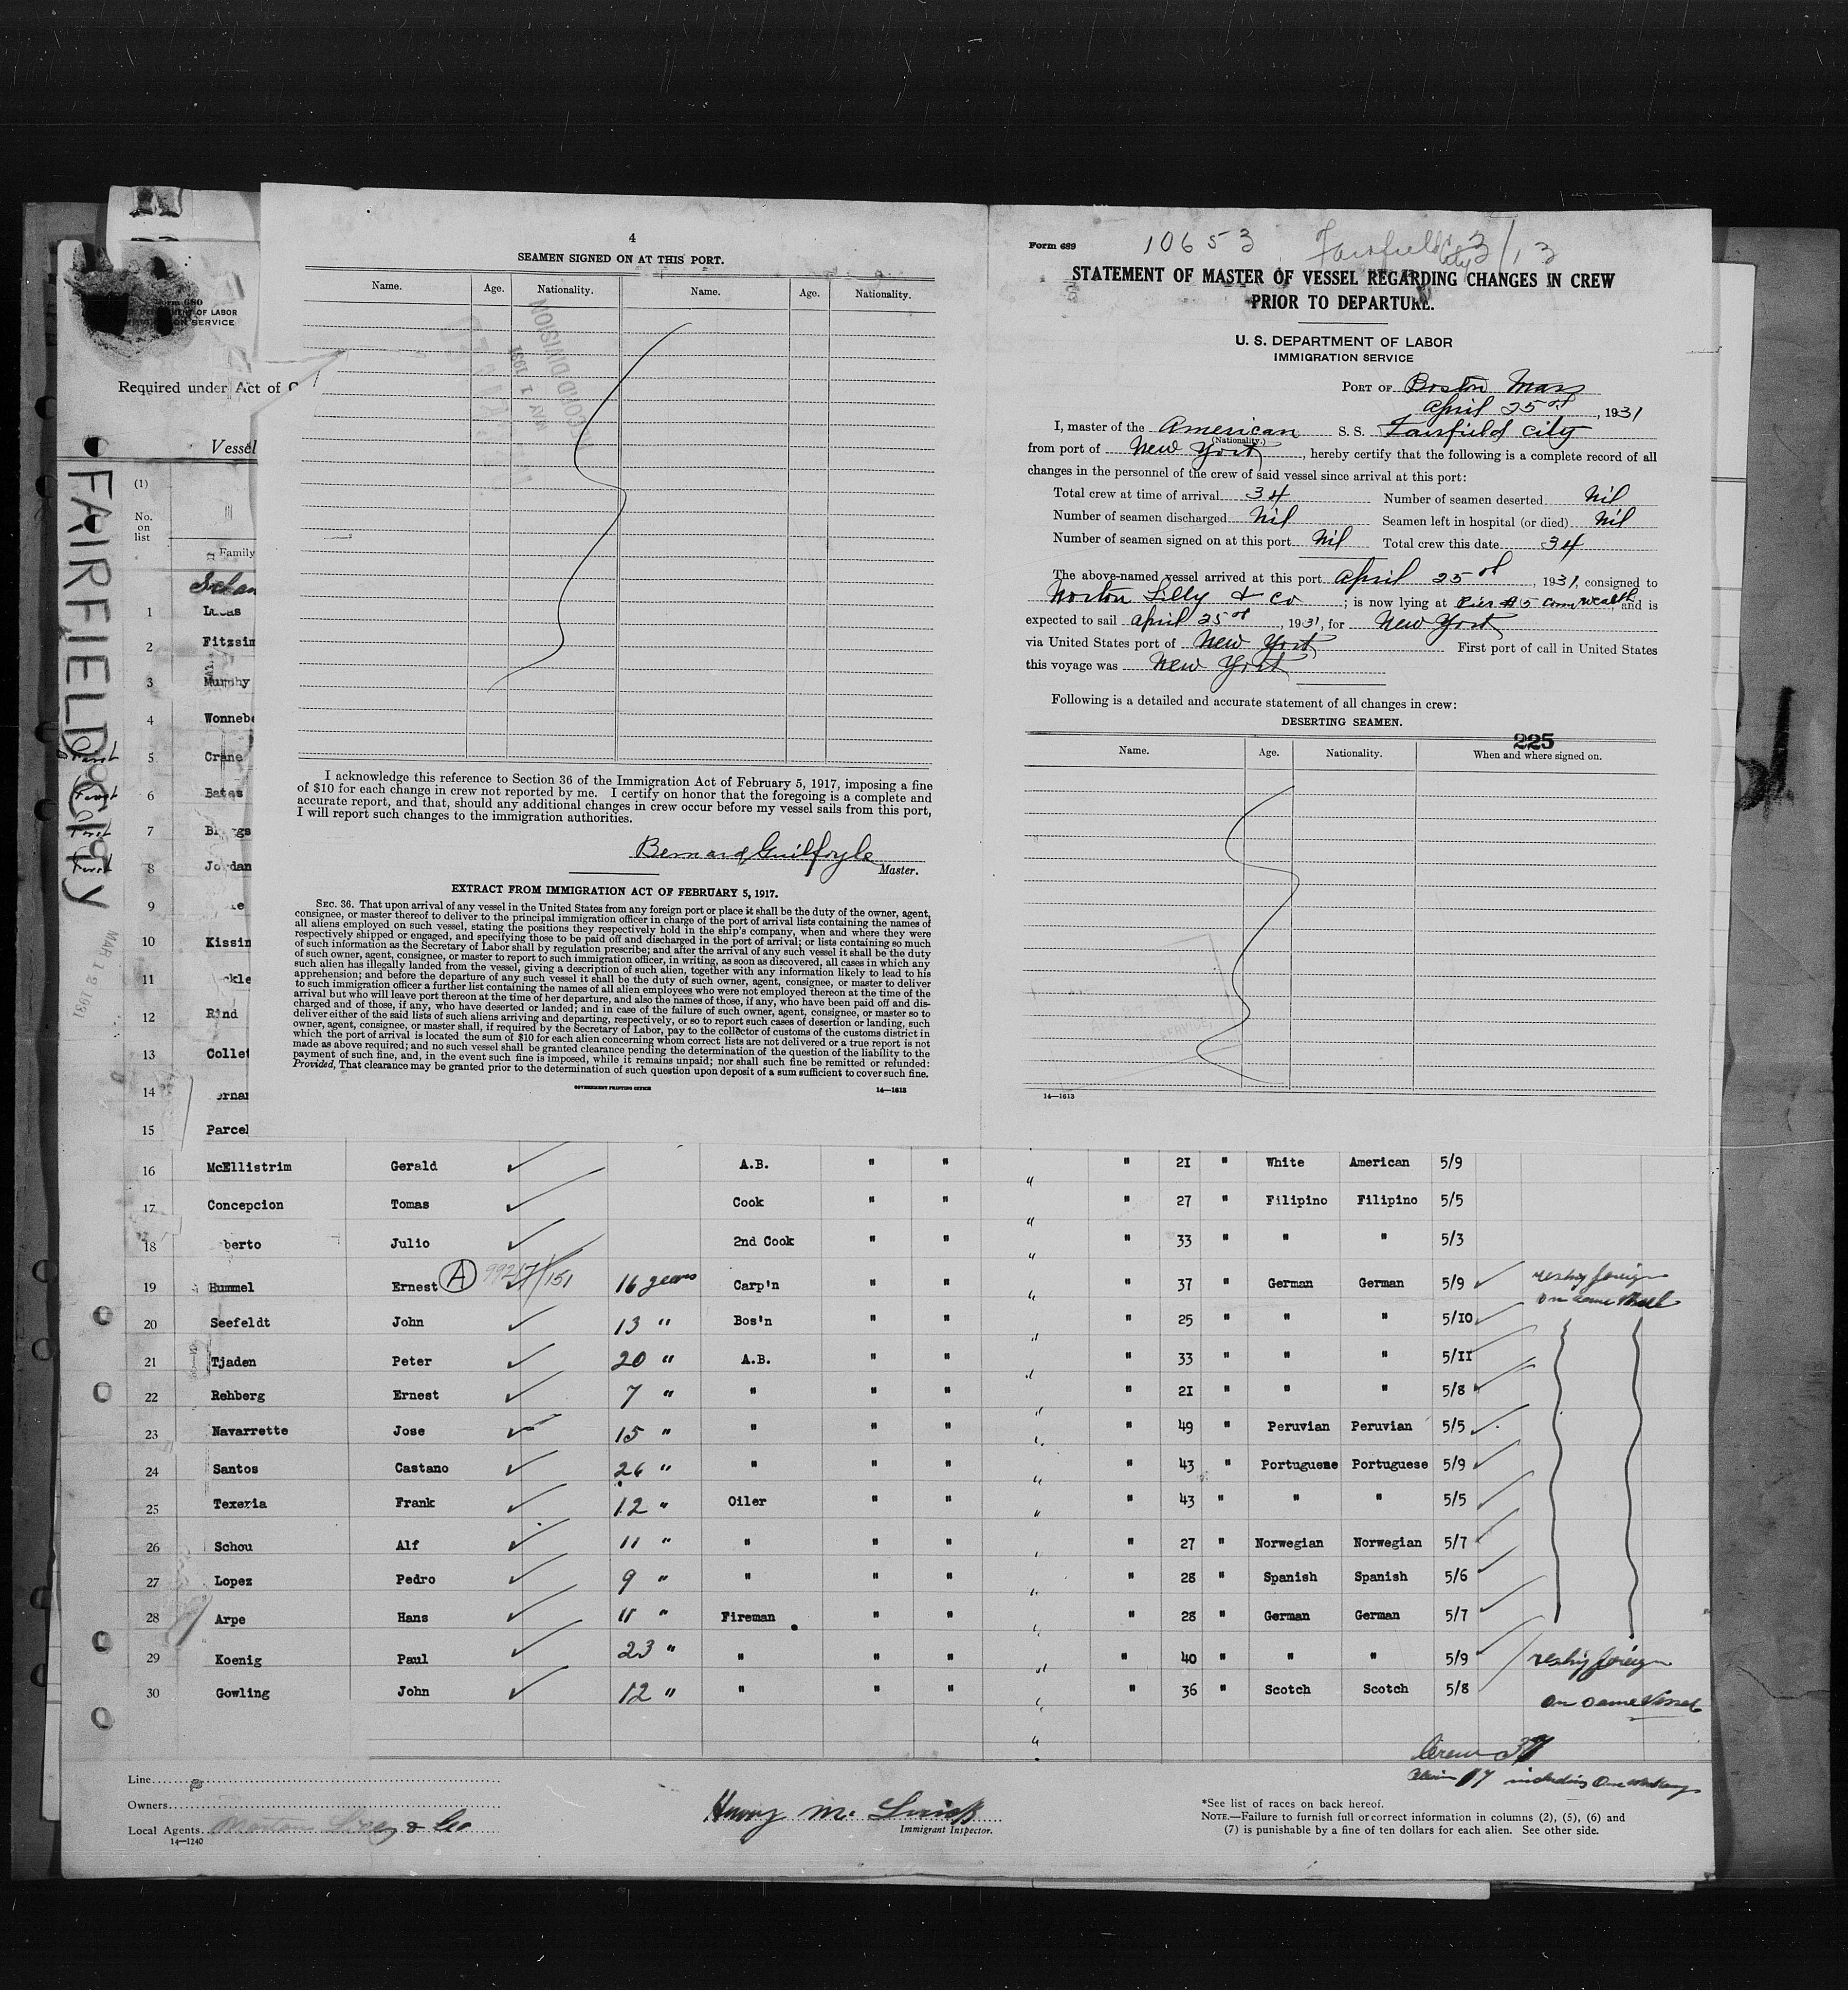 4
SEAMEN SIGNED ON AT THIS PORT.
Name. Age. Nationality. Name. Age. Nationality.
RECORD DIVISION
MAY 1 1931
I acknowledge this reference to Section 36 of the Immigration Act of February 5, 1917, imposing a fine
of $10 for each change in crew not reported by me. I certify on honor that the foregoing is a complete and
accurate report, and that, should any additional changes in crew occur before my vessel sails from this port,
I will report such changes to the immigration authorities.
Bernard Guilfoyle
Master.
EXTRACT FROM IMMIGRATION ACT OF FEBRUARY 5, 1917.
SEC. 36. That upon arrival of any vessel in the United States from any foreign port or place it shall be the duty of the owner, agent,
consignee, or master thereof to deliver to the principal immigration officer in charge of the port of arrival lists containing the names of
all aliens employed on such vessel, stating the positions they respectively hold in the ship's company, when and where they were
respectively shipped or engaged, and specifying those to be paid off and discharged in the port of arrival; or lists containing so much
of such information as the Secretary of Labor shall by regulation prescribe; and after the arrival of any such vessel it shall be the duty
of such owner, agent, consignee, or master to report to such immigration officer, in writing, as soon as discovered, all cases in which any
such alien has illegally landed from the vessel, giving a description of such alien, together with any information likely to lead to his
apprehension; and before the departure of any such vessel it shall be the duty of such owner, agent, consignee, or master to deliver
to such immigration officer a further list containing the names of all alien employees who were not employed thereon at the time of the
arrival but who will leave port thereon at the time of her departure, and also the names of those, if any, who have been paid off and dis-
charged and of those, if any, who have deserted or landed; and in case of the failure of such owner, agent, consignee, or master so to
deliver either of the said lists of such aliens arriving and departing, respectively, or so to report such cases of desertion or landing, such
owner, agent, consignee, or master shall, if required by the Secretary of Labor, pay to the collector of customs of the customs district in
which the port of arrival is located the sum of $10 for each alien concerning whom correct lists are not delivered or a true report is not
made as above required; and no such vessel shall be granted clearance pending the determination of the question of the liability to the
payment of such fine, and, in the event such fine is imposed, while it remains unpaid; nor shall such fine be remitted or refunded:
Provided, That clearance may be granted prior to the determination of such question upon deposit of a sum sufficient to cover such fine.
GOVERNMENT PRINTING OFFICE 14—1613
Form 689 10653 Fairfield City 3/13
STATEMENT OF MASTER OF VESSEL REGARDING CHANGES IN CREW
PRIOR TO DEPARTURE.
U. S. DEPARTMENT OF LABOR
IMMIGRATION SERVICE
PORT OF Boston Mass
April 25th, 1931
I, master of the American S. S. Fairfield City
(Nationality.)
from port of New York, hereby certify that the following is a complete record of all
changes in the personnel of the crew of said vessel since arrival at this port:
Total crew at time of arrival 34 Number of seamen deserted Nil
Number of seamen discharged Nil Seamen left in hospital (or died) Nil
Number of seamen signed on at this port Nil Total crew this date 34
The above-named vessel arrived at this port April 25th, 1931, consigned to
Norton Lilly & Co; is now lying at Pier #5 Comwealth and is
expected to sail April 25th, 1931, for New York
via United States port of New York First port of call in United States
this voyage was New York
Following is a detailed and accurate statement of all changes in crew:
DESERTING SEAMEN.
225
Name. Age. Nationality. When and where signed on.
14—1613
Form 680
DEPARTMENT OF LABOR
IMMIGRATION SERVICE
Required under Act of
Vessel
(1)
No. on list
Family
FAIRFIELD City
MAR 12 1931
1 Lucas
2 Fitzsim
3 Murphy
4 Wonnebe
First 5 Crane
First 6 Bates
First 7
First 8 Jordan
9
10 Kissin
11 ckle
12 Rind
13 Colle
14 ernan
15 Parcel
16 McEllistrim Gerald A.B. " " " " 21 " White American 5/9
17 Concepcion Tomas Cook " " " " 27 " Filipino Filipino 5/5
18 berto Julio 2nd Cook " " " " 33 " " " 5/3
19 Hummel Ernest A 16 years Carp'n " " " " 37 " German German 5/9 reship foreign
on same vessel
20 Seefeldt John 13 " Bos'n " " " " 25 " " " 5/10
21 Tjaden Peter 20 " A.B. " " " " 33 " " " 5/11
22 Rehberg Ernest 7 " " " " " " 21 " " " 5/8
23 Navarrette Jose 15 " " " " " " 49 " Peruvian Peruvian 5/5
24 Santos Castano 26 " " " " " " 43 " Portuguese Portuguese 5/9
25 Texeria Frank 12 " Oiler " " " " 43 " " " 5/5
26 Schou Alf 11 " " " " " " 27 " Norwegian Norwegian 5/7
27 Lopez Pedro 9 " " " " " " 28 " Spanish Spanish 5/6
28 Arpe Hans 11 " Fireman " " " " 28 " German German 5/7
29 Koenig Paul 23 " " " " " " 40 " " " 5/9 reship foreign
30 Gowling John 12 " " " " " " 36 " Scotch Scotch 5/8 on same vessel
Crew 37
17 including one
Line
Owners
Local Agents Norton Lilly & Co
14—1240
Immigrant Inspector.
*See list of races on back hereof.
NOTE.—Failure to furnish full or correct information in columns (2), (5), (6) and
(7) is punishable by a fine of ten dollars for each alien. See other side.